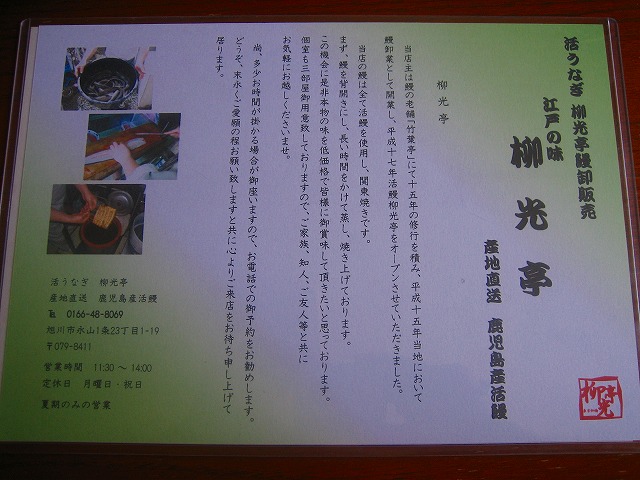 活うなぎ 柳光亭鰻卸販売
江戸の味
柳光亭
産地直送 鹿児島産活鰻
柳光亭
当店主は鰻の老舗「竹葉亭」にて十五年の修行を積み、平成十五年当地において
鰻卸業として開業し、平成十七年活鰻柳光亭をオープンさせていただきました。
当店の鰻は全て活鰻を使用し、関東焼きです。
まず、鰻を背開きにし、長い時間をかけて蒸し、焼き上げております。
この機会に是非本物の味を低価格で皆様に御賞味して頂きたいと思っております。
個室も三部屋御用意致しておりますので、ご家族、知人、ご友人等と共に
お気軽にお越しくださいませ。
尚、多少お時間が掛かる場合が御座いますので、お電話での御予約をお勧めします。
どうぞ、末永くご愛顧の程お願い致しますと共に心よりご来店をお待ち申し上げて
居ります。
活うなぎ 柳光亭
産地直送 鹿児島産活鰻
℡ 0166-48-8069
旭川市永山1条23丁目1-19
〒079-8411
営業時間 11:30～14:00
定休日 月曜日・祝日
夏期のみの営業
柳光亭